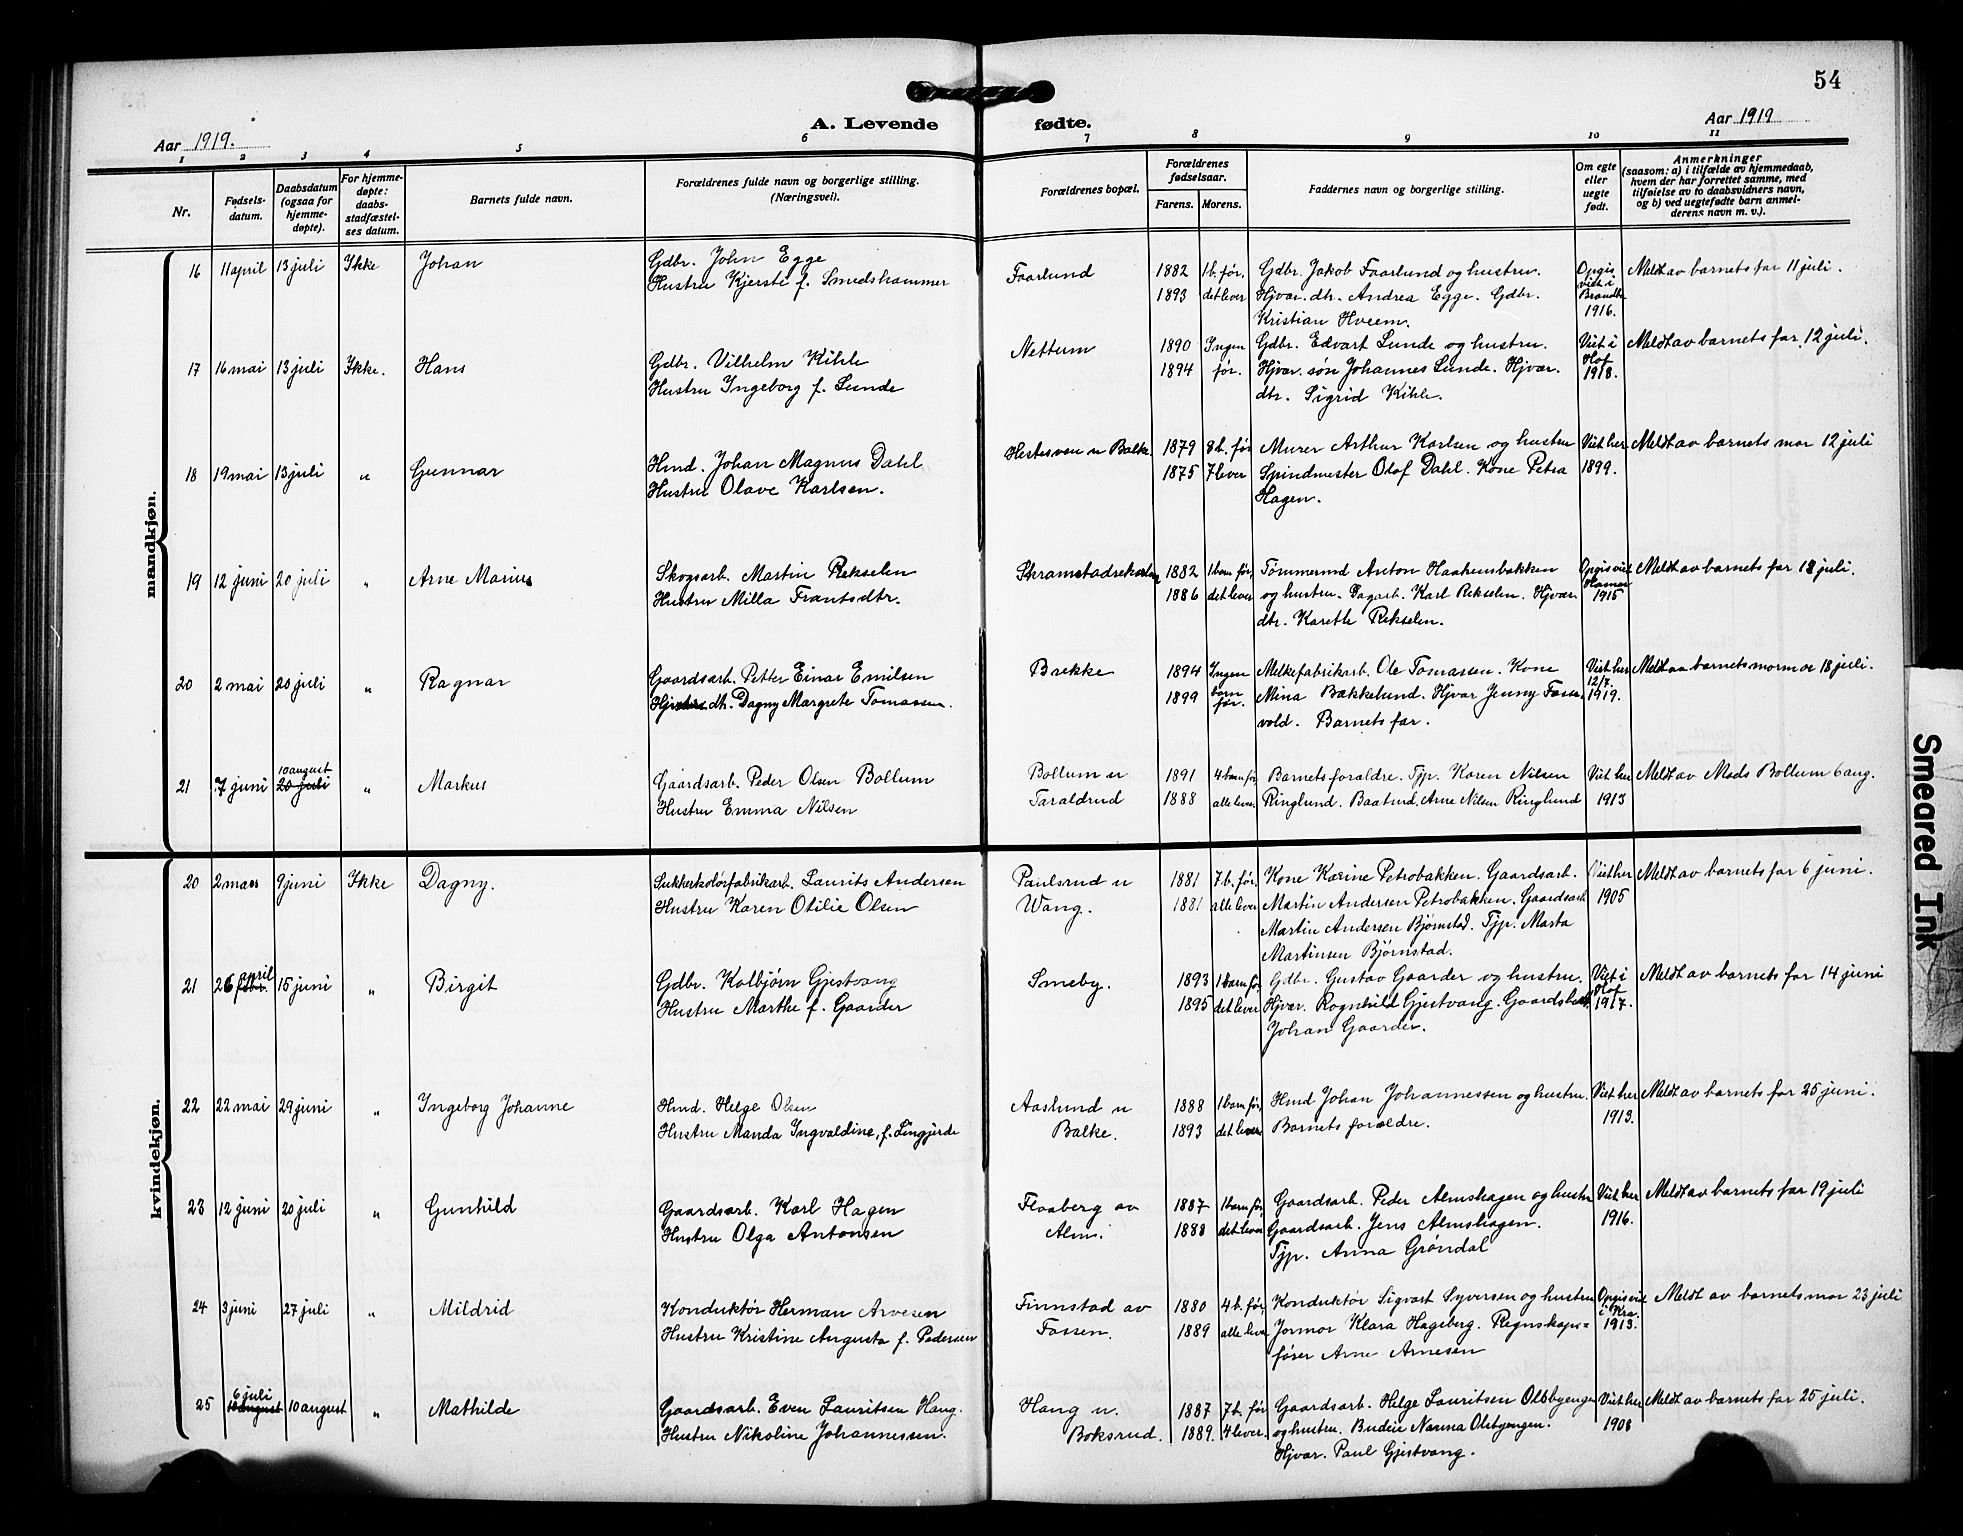 54
A. Levende fødte.
Aar 1919.
Aar 1919
1 2 3 4 5 6 7 8 9 10 11
Nr.
Fødsels-
datum.
Daabsdatum
(ogsaa for
hjemme-
døpte).
For hjemme-
døpte:
daabs-
stadfæstel-
ses datum.
Barnets fulde navn.
Forældrenes fulde navn og borgerlige stilling.
(Næringsvei).
Forældrenes bopæl.
Forældrenes
fødselsaar.
Farens. Morens.
Faddernes navn og borgerlige stilling.
Om egte
eller
uegte
født.
Anmerkninger
(saasom: a) i tilfælde av hjemmedaab,
hvem der har forrettet samme, med
tilføielse av to daabsvidners navn,
og b) ved uegtefødte barn anmel-
derens navn m. v.).
mandkjøn.
16 11 april 13 juli Ikke Johan
Gdbr. John Egge
Hustru Kjersti f. Smedshammer
Faarlund
1882 1 b. før.
1893 det lever
Gdbr. Jakob Faarlund og hustru.
Hjvær. dtr. Andrea Egge. Gdbr.
Kristian Hveem.
Opgis
viet i
Brandbu
1916.
Meldt av barnets far 11 juli.
17 16 mai 13 juli Ikke. Hans
Gdbr. Vilhelm Kihle
Hustru Ingeborg f. Lunde
Nettum
1890 Ingen
1894 før.
Gdbr. Edvart Lunde og hustru.
Hjvær. søn Johannes Lunde. Hjvær.
dtr. Sigrid Kihle.
Viet i
Hof
1918.
Meldt av barnets far 12 juli.
18 19 mai 13 juli " Gunnar
Hmd. Johan Magnus Dahl
Hustru Olave Karlsen.
Hestesveen u Balke.
1879 8 b. før
1875 7 lever
Murer Arthur Karlsen og hustru
Spindmester Olaf Dahl. Kone Petra
Hagen.
Viet her
1899.
Meldt av barnets mor 12 juli
19 12 juni 20 juli " Arne Marius
Skogsarb. Martin Rekselen
Hustru Milla Frantsdtr.
1882 1 barn før,
1886 det lever
Tømmermd Anton Haakensbakken
og hustru. Dagarb. Karl Rekselen. Hjvær
dtr. Karethe Rekselen.
Opgis viet
Hamar
1915
Meldt av barnets far 12 juli.
20 2 mai 20 juli " Ragnar
Gaardsarb. Petter Einar Emilsen
dtr. Dagny Margrete Tomassen.
Brekke
1894 Ingen
1899 barn
før.
Melkefabrikarb. Ole Tomassen. Kone
Mina Bækkelund. Hjvær Jenny Fosse-
vold. Barnets far.
Viet her
12/7
1919.
Meldt av barnets mormor 18 juli.
21 7 juni 10 august
20 juli " Markus
Gaardsarb. Peder Olsen Bollum
Hustru Emma Nilsen
Bollum u
Taraldrud
1891 4 barn før,
1888 alle lever.
Barnets forældre. Tjp. Karen Nilsen
Ringlund. Baatmd. Arne Nilsen Ringlund
Viet her
1913
Meldt av Mads Bollum 6 aug.
kvindekjøn.
20 2 mars 9 juni Ikke Dagny.
Sukkerkolørfabrikarb. Laurits Andersen
Hustru Karen Otilie Olsen
Paulsrud u
Wang.
1881 7. b. før.
1881 alle lever
Kone Karine Petrobakken. Gaardsarb.
Martin Andersen Petrobakken. Gaardsarb
Martin Andersen Bjørnstad. Tjp. Marta
Martinsen Bjørnstad.
Viet her
1905
Meldt av barnets far 6 juni.
21 26 april
febr. 15 juni " Birgit
Gdbr. Kolbjørn Gjestvang
Hustru Marthe f. Gaarder
Smeby.
1893 1 barn før
1895 det lever
Gdbr. Gustav Gaarder og hustru.
Hjvær. Ragnhild Gjestvang.
Johan Gaarder.
Viet i
Hof
1917.
Meldt av barnets far 14 juni
22 22 mai 29 juni " Ingeborg Johanne
Hmd. Helge Olsen
Hustru Manda Ingvaldine, f. Lingjerde
Aaslund u
Balke.
1888 1 barn før,
1893 det lever
Hmd Johan Johannessen og hustru.
Barnets forældre.
Viet her
1913.
Meldt av barnets far 25 juni.
23 12 juni 20 juli " Gunhild
Gaardsarb. Karl Hagen
Hustru Olga Antonsen
Flaaberg av
Alm.
1887 1 barn før,
1888 det lever
Gaardsarb. Peder Almshagen og hustru
Gaardsarb. Jens Almshagen.
Tjp. Anna Grøndal
Viet her
1916.
Meldt av barnets far 19 juli
24 3 juni 27 juli " Mildrid
Konduktør Herman Arvesen
Hustru Kristine Augusta f. Pedersen
Finnstad av
Fossen.
1880 4 b. før,
1889 alle lever
Konduktør Sigvart Syversen og hustru
Jormor Klara Hageberg. Regnskaps=
fører Arne Arnesen
Opgis viet
i Kra
1913.
Meldt av barnets mor 23 juli
25 6 juli
10 august 10 august " Mathilde
Gaardsarb. Even Lauritsen Haug.
Hustru Nikoline Johannessen.
Haug u.
Boksrud.
1887 7 b. før
1889. 4 lever.
Gaardsarb. Helge Lauritsen Olsbyengen
og hustru. Budeie Nanna Olsbyengen.
Hjvær. Paul Gjestvang.
Viet her
1908
Meldt av barnets far 25 juli.
Smeared Ink